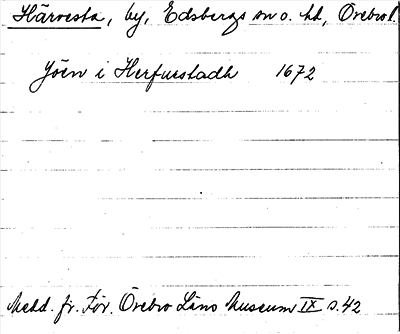 Härvesta, by, Edsbergs sn o. hd, Örebro l.
Jöen i Herfuestadh 1672
Medd. fr. För. Örebro Läns Museum IX s. 42